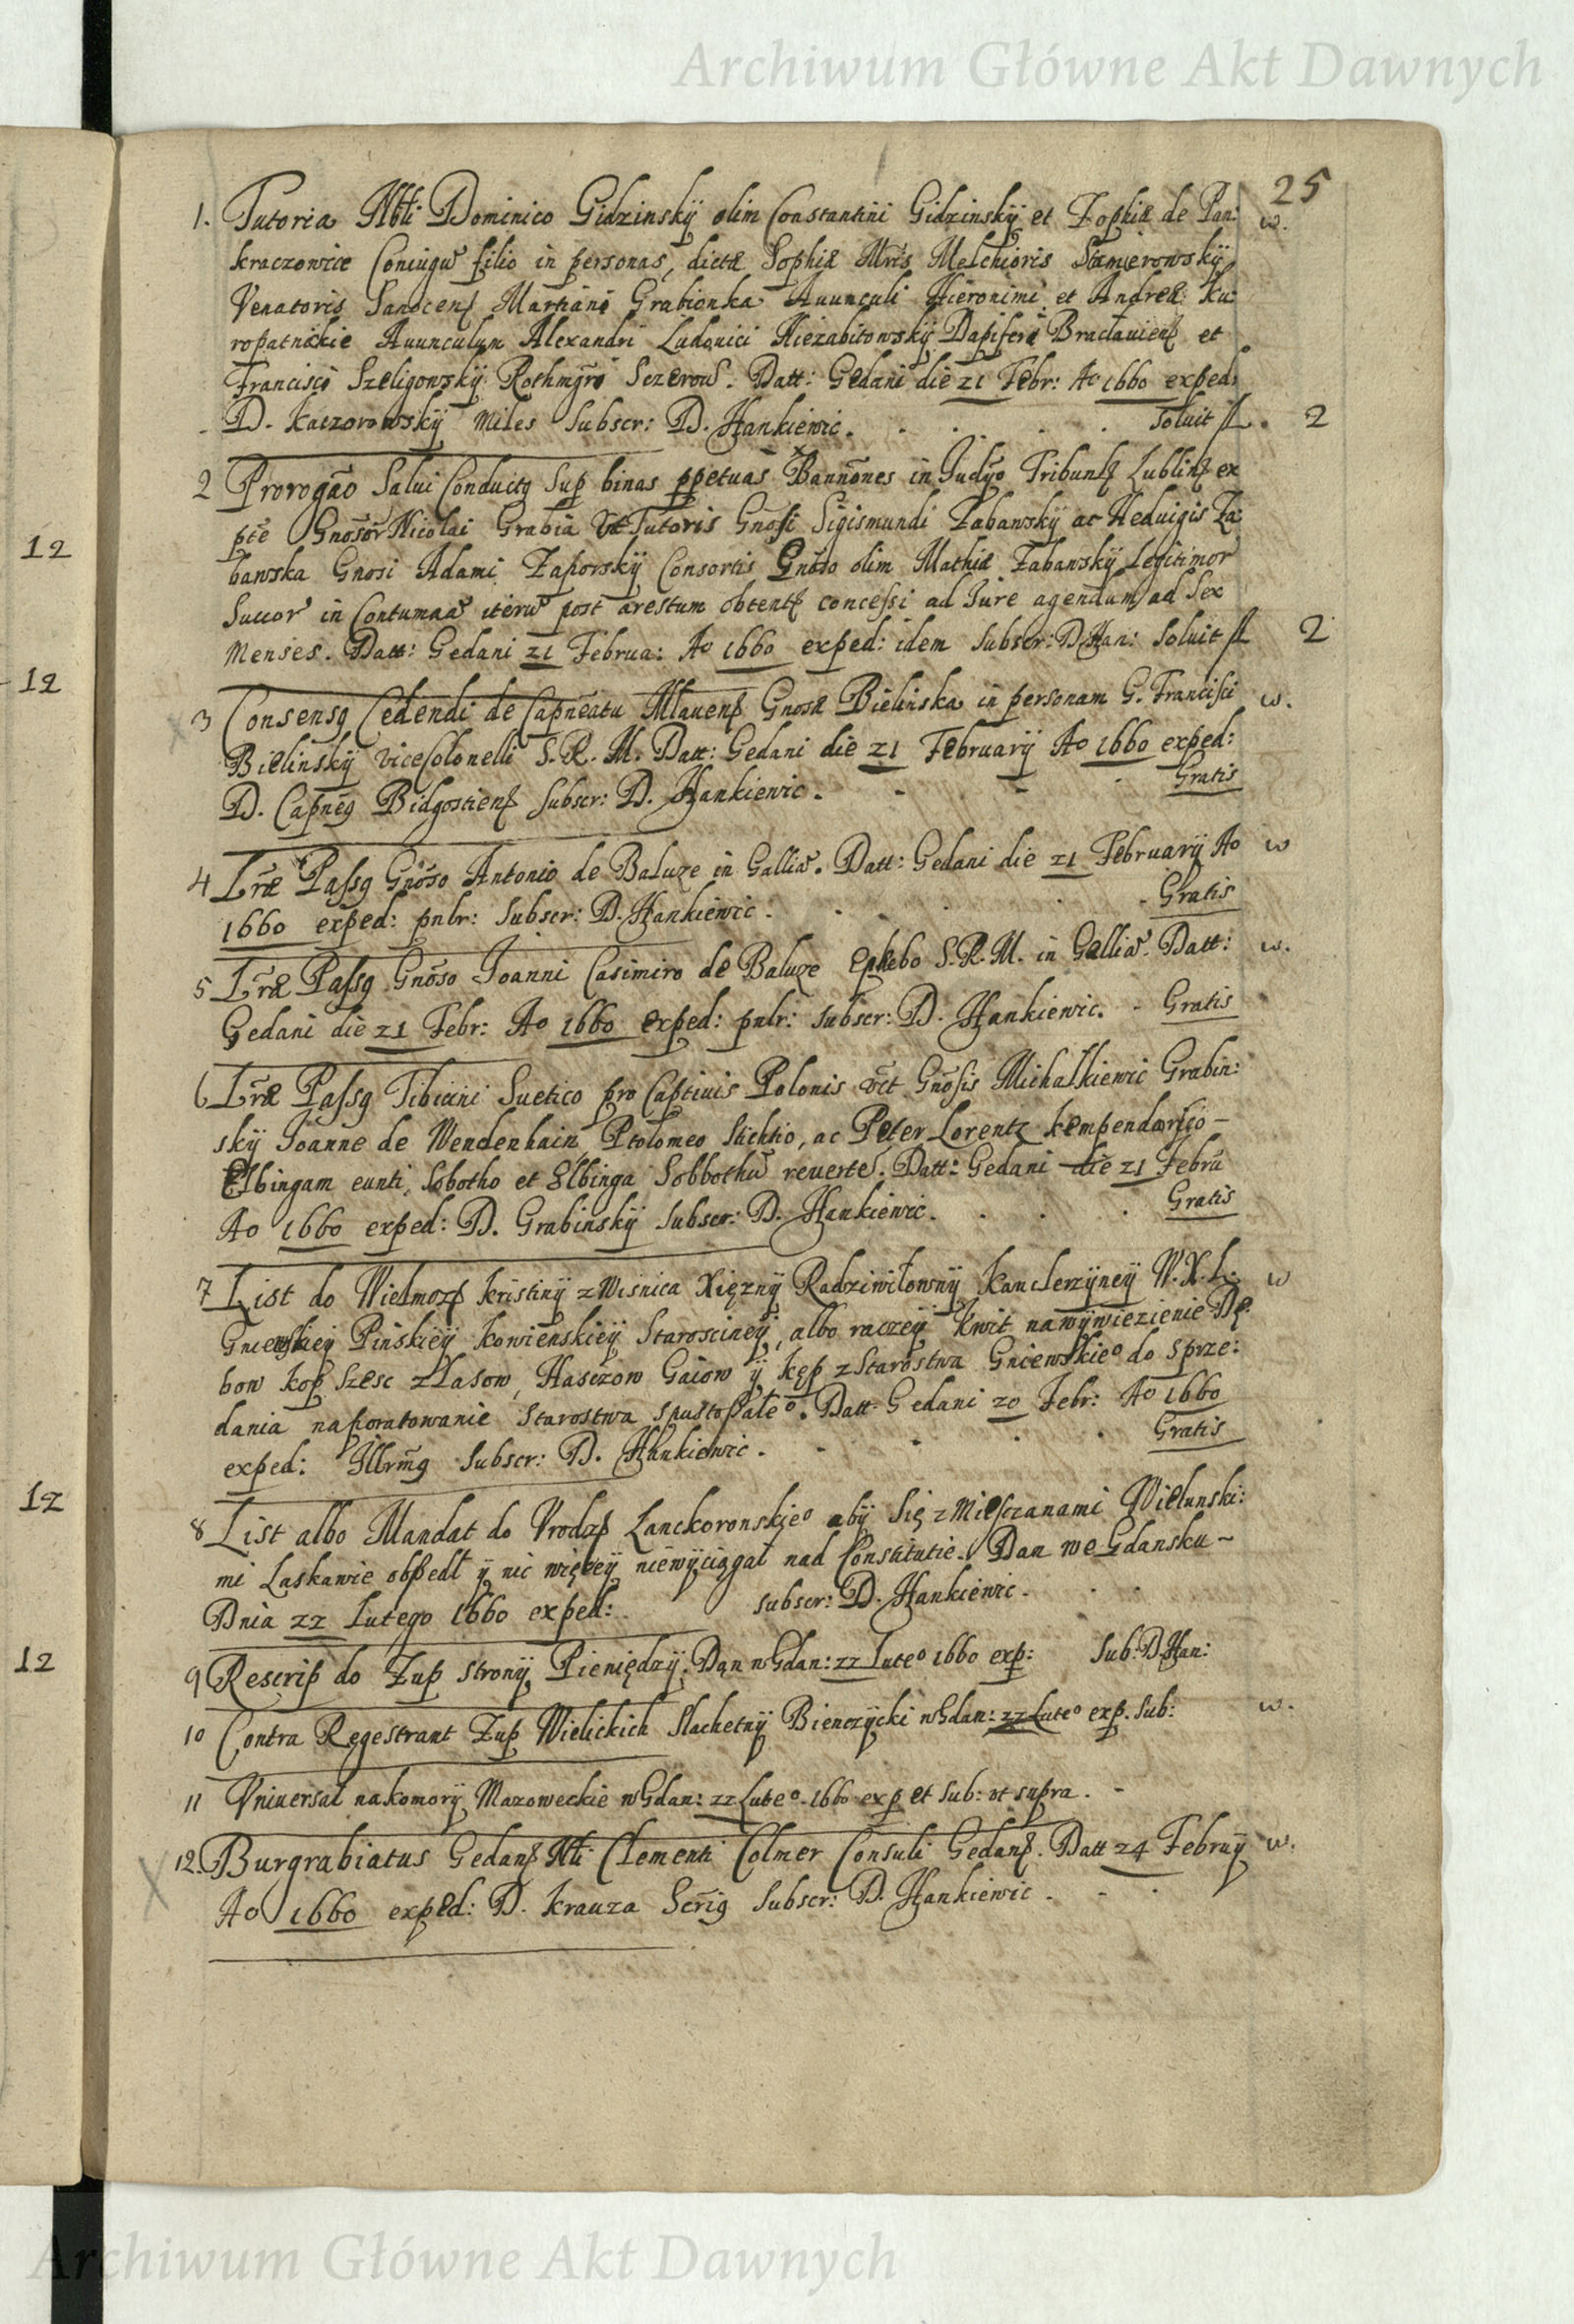 Archiwum Główne Akt Dawnych
25
1. Tutoria Nbli Dominico Gidzinskÿ olim Constantini Gidzinskÿ et Zophiæ de Pan: w.
kraczowice Coniugũ filio in personas, dictæ Sophiæ Mr̃is Melchioris Stamierowskÿ
Venatoris Sanocen̄ Martiani Grabionka Auunculi Hieronimi et Andreæ Ku:
ropatnickie Auunculũ Alexandri Ludouici Niezabitowskÿ Dapiferi Bracłauien̄ et
Francisci Szeligowskÿ Rothmgr̃i Sczerou. Datt: Gedani die 21 Febr: Ao 1660 exped:
D. Kaczorowskÿ Miles Subscr: D. Hankiewic. Soluit fl. 2
2 Prorogãõ Salui Conductq Sup binas ppetuas Bannõnes in Judÿo Tribunal Lublin ex
pte Gnõsor Nicolai Grabia vt Tutoris Gnõsi Sigismundi Zabawskÿ ac Heduigis Za:
bawska Gnosi Adami Zaporskÿ Consortis Gnõso olim Mathiæ Zabawskÿ Legitimor
Succor in Contumaã iterũ post arestum obtent concessi ad Jure agendum ad Sex
Menses. Datt: Gedani 21 Februa: Ao 1660 exped: idem Subscr: D Han: Soluit fl 2
3 Consensq Cedendi de Capñeatu Mlauen Gnosæ Bielinska in personam G. Francisci w.
Bielinskÿ viceColonelli S. R. M. Datt: Gedani die 21 Februarÿ Ao 1660 exped:
D. Capñeq Bidgostien Subscr: D. Hankiewic. Gratis
4 Lr̃æ Passq Gnõso Antonio de Baluze in Galliã. Datt: Gedani die 21 Februarÿ Ao w
1660 exped: pnlr: Subscr: D. Hankiewic. Gratis
5 Lr̃æ Passq Gnõso Joanni Casimiro de Baluze Ephebo S. R. M. in Galliã. Datt: w.
Gedani die 21 Febr: Ao 1660 exped: pnlr: Subscr: D. Hankiewic. Gratis
6 Lr̃æ Passq Tibicini Suetico pro Captiuis Polonis vt Gnõsis Michałkiewic Grabin:
skÿ Joanne de Wendenhain Ptolomeo Stichtio, ac Peter Lorentz
Elbingam eunti, Sobotho et Elbinga Sobbothũ reuerte. Datt: Gedani die 21 Febru
Ao 1660 exped: D. Grabinskÿ Subscr: D. Hankiewic. Gratis
7 List do Wielmoz kristinÿ z Wisnica Xięznÿ Radziwiłownÿ kanclerzÿneÿ W. X. L. w
Gniewskieÿ Pinskieÿ kowienskieÿ Staroscineÿ, albo raczeÿ kwit na wÿwiezienie Dę:
bow kop Szesc z Lasow, Hasczow Gaiow ÿ kęp z Starostwa Gniewskieo do Sprze:
dania na poratowanie Starostwa Spustoszałeo. Datt Gedani 20 Febr: Ao 1660
exped: Jllrm̃q Subscr: D. Hankiewic. Gratis
8 List albo Mandat do Vrodz Lanckoronskieo abÿ Się z Miesczanami Wielunski:
mi Laskawie obszedł ÿ nic więceÿ niewÿciągał nad Constitutie. Dan we Gdansku
Dnia 22 Lutego 1660 exped: Subscr: D. Hankiewic.
9 Rescrip do Zup Stronÿ Pieniędzÿ. Dan w Gdan: 22 Luteo 1660 exp: Sub: D Han:
10 Contra Regestrant Zup Wielickich Slachetnÿ Bienczÿcki w Gdan: 22 Luteo exp. Sub: w.
11 Vniuersał na komorÿ Mazoweckie w Gdan: 22 Luteo. 1660 exp et Sub: vt supra.
12. Burgrabiatus Gedan Nbli Clementi Colmer Consuli Gedan. Datt 24 Februÿ w.
Ao 1660 exped: D. krauza Scr̃iq Subscr: D. Hankiewic.
12
12
12
12
Archiwum Główne Akt Dawnych